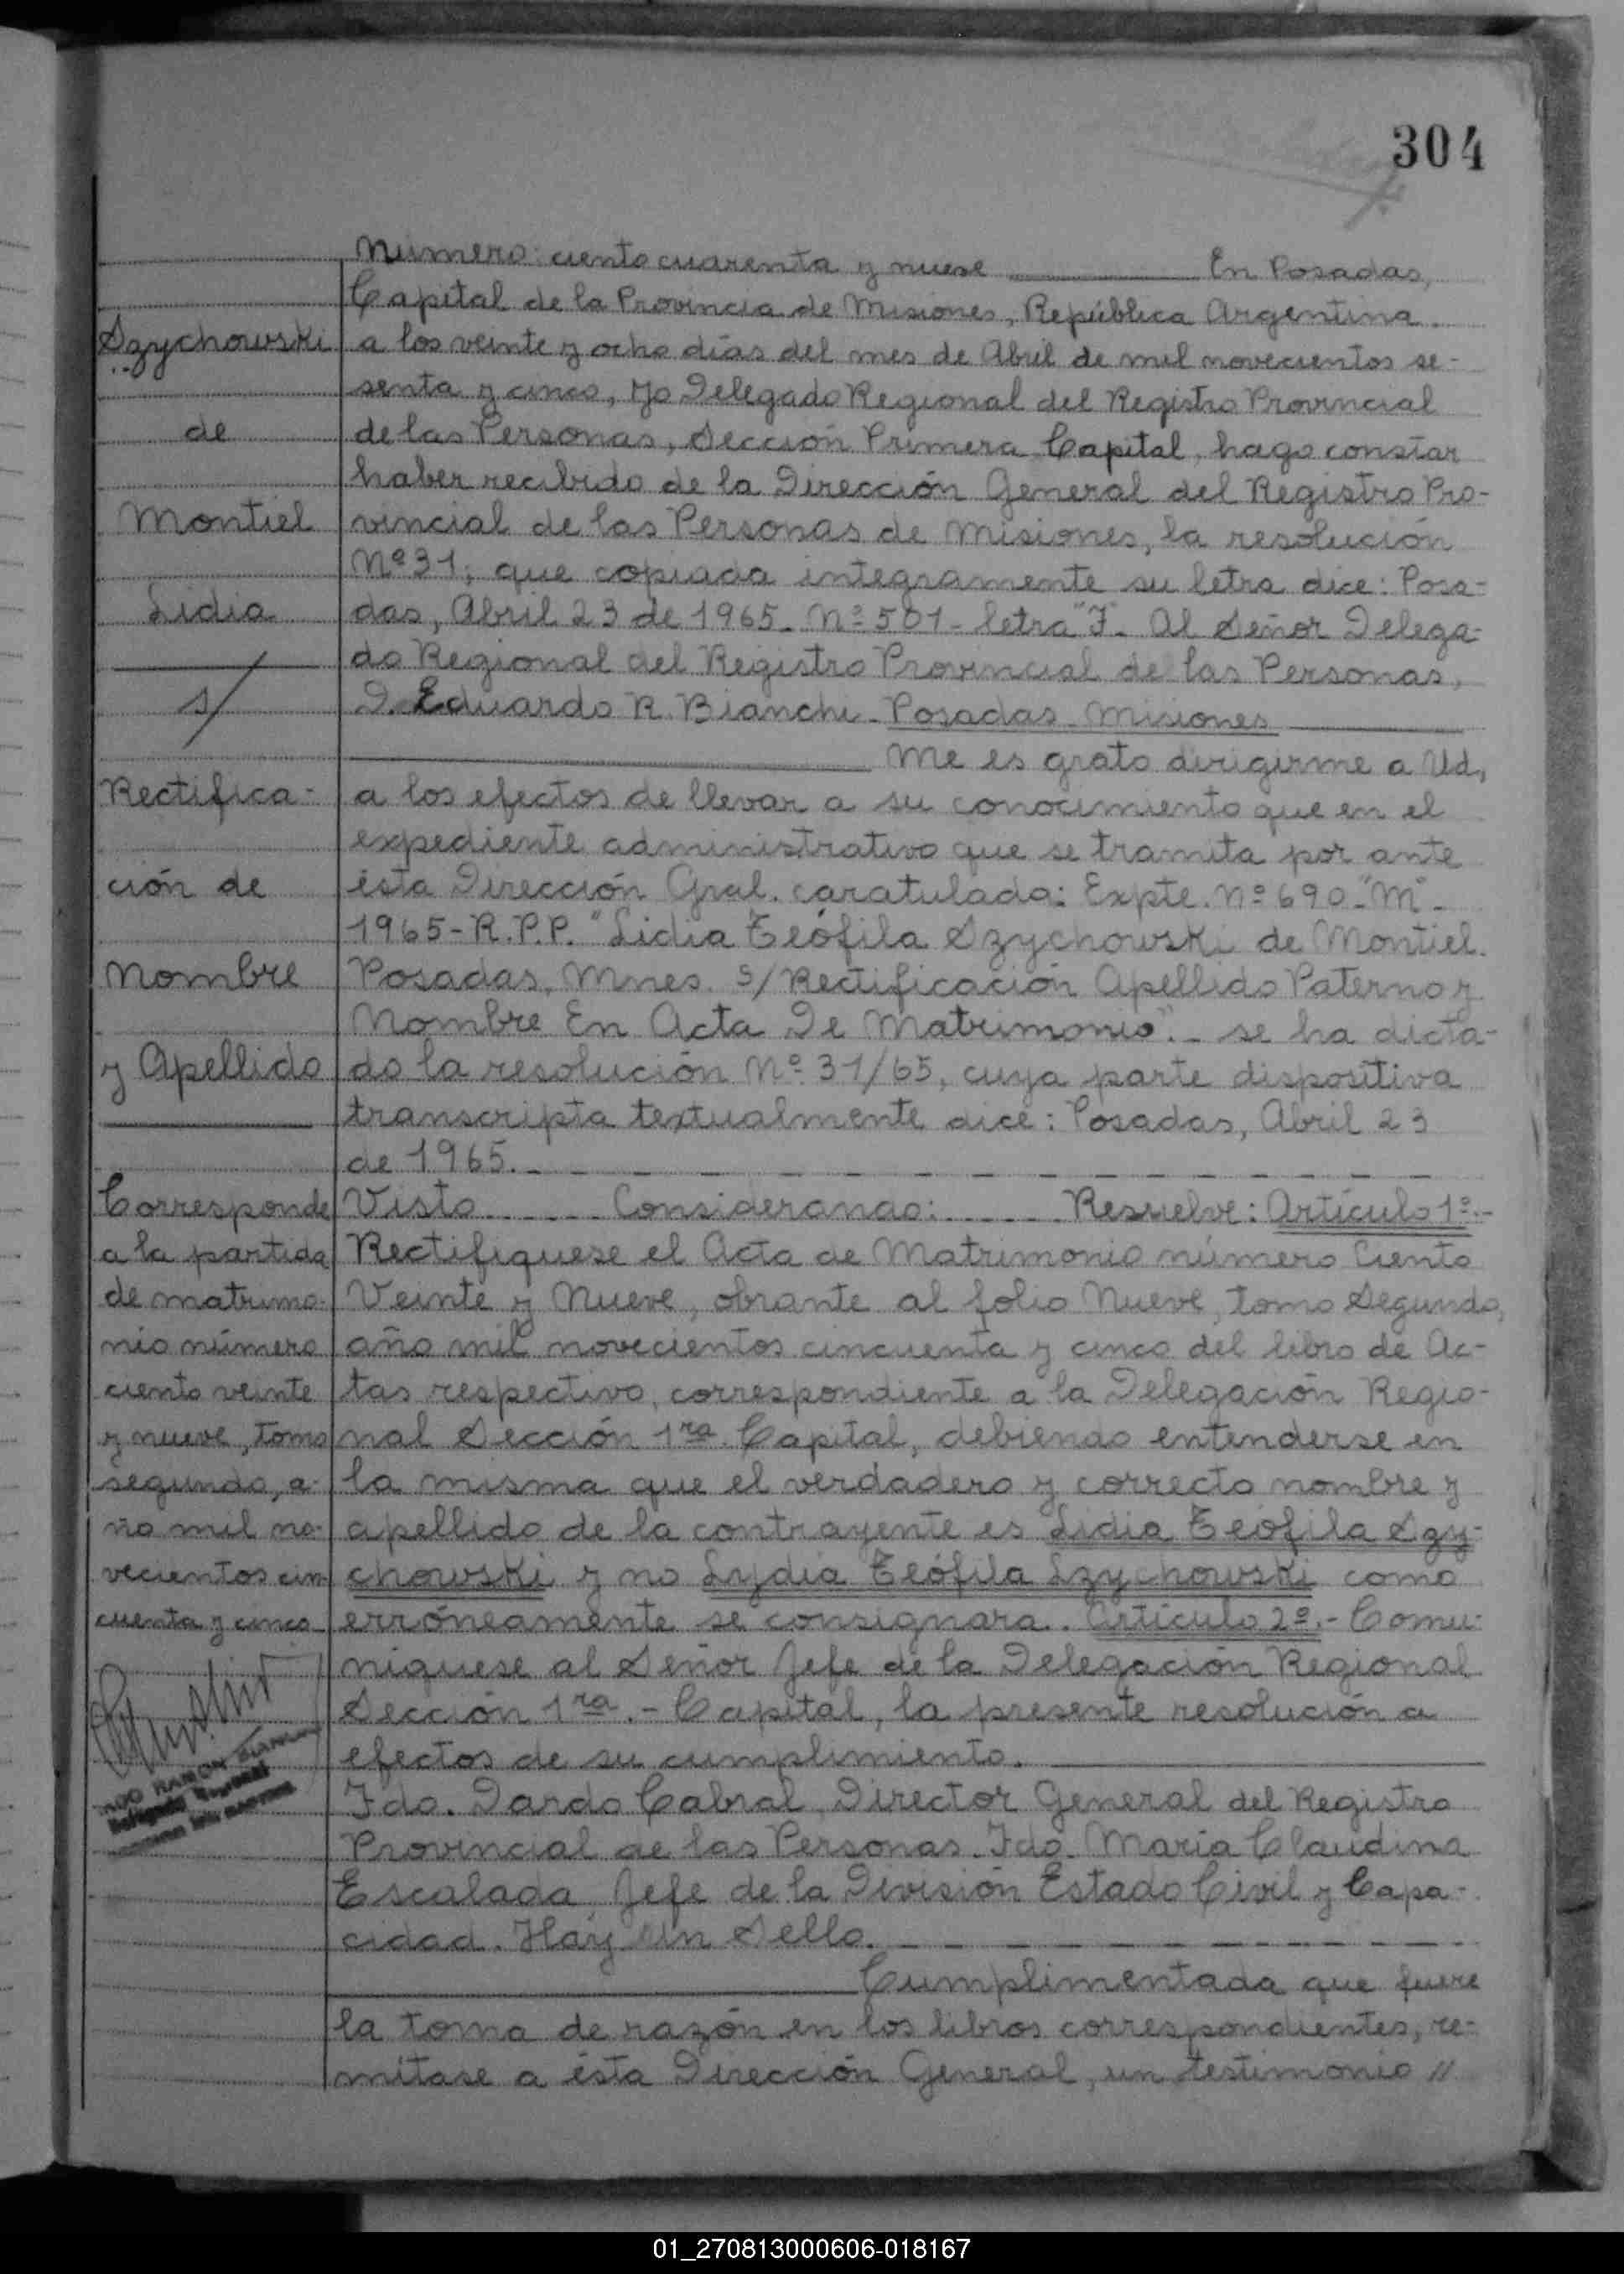 304
Numero: ciento cuarenta y nueve En Posadas,
Capital de la Provincia de Misiones, República Argentina
a los veinte y ocho días del mes de Abril de mil novecientos se-
senta y cinco, yo Delegado Regional del Registro Provincial
de las Personas, Sección Primera Capital, hago constar
haber recibido de la Dirección General del Registro Pro-
vincial de las Personas de Misiones, la resolución
Nº 31; que copiada integramente su letra dice: Posa-
das, Abril 23 de 1965. Nº 501 - letra "F. Al Señor Delega-
do Regional del Registro Provincial de las Personas,
D. Eduardo R. Bianchi - Posadas - Misiones
Me es grato dirigirme a Ud,
a los efectos de llevar a su conocimiento que en el
expediente administrativo que se tramita por ante
ésta Dirección Gral. caratulado: Expte. Nº 690-"M"-
1965-R.P.P. "Lidia Teófila Szychowski de Montiel.
Posadas, Mnes. S/ Rectificación Apellido Paterno y
Nombre En Acta De Matrimonio".- se ha dicta-
do la resolución Nº 31/65, cuya parte dispositiva
transcripta textualmente dice: Posadas, Abril 23
de 1965.-
Visto ...... Considerando: ...... Resuelve: Artículo 1º.-
Rectifiquese el Acta de Matrimonio número Ciento
Veinte y Nueve, obrante al folio Nueve, tomo Segundo,
año mil novecientos cincuenta y cinco del libro de Ac-
tas respectivo, correspondiente a la Delegación Regio-
nal Sección 1ra. Capital, debiendo entenderse en
la misma que el verdadero y correcto nombre y
apellido de la contrayente es Lidia Teófila Szy-
chowski y no Lydia Teófila Szychowski como
erróneamente se consignara. Artículo 2º.- Comu-
niquese al Señor Jefe de la Delegación Regional
Sección 1ra.- Capital, la presente resolución a
efectos de su cumplimiento.
Fdo. Dardo Cabral, Director General del Registro
Provincial de las Personas. Fdo. María Claudina
Escalada, Jefe de la División Estado Civil y Capa-
cidad. Hay un Sello.
Cumplimentada que fuere
la toma de razón en los libros correspondientes, re-
mítase a ésta Dirección General, un testimonio //
Szychowski
de
Montiel
Lidia
s/
Rectifica-
ción de
Nombre
y Apellido
Corresponde
a la partida
de matrimo-
nio número
ciento veinte
y nueve, tomo
segundo, a-
ño mil no-
vecientos cin-
cuenta y cinco
RAMON BIANCHI
Delegado Regional
01_270813000606-018167